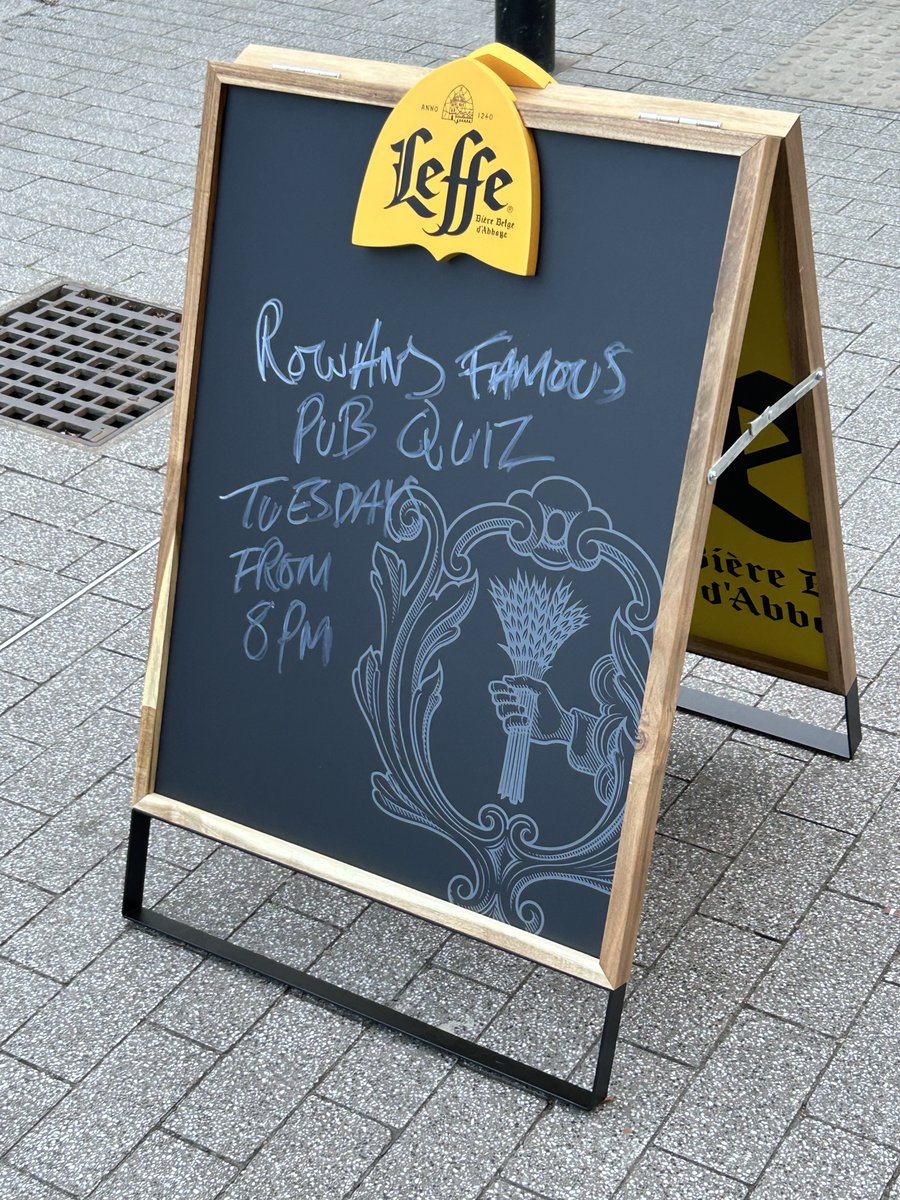 ANNO 1240
Leffe®
Bière Belge
d'Abbaye
ROWANS FAMOUS
PUB QUIZ
TUESDAY
FROM
8PM
Bière
d'Abb